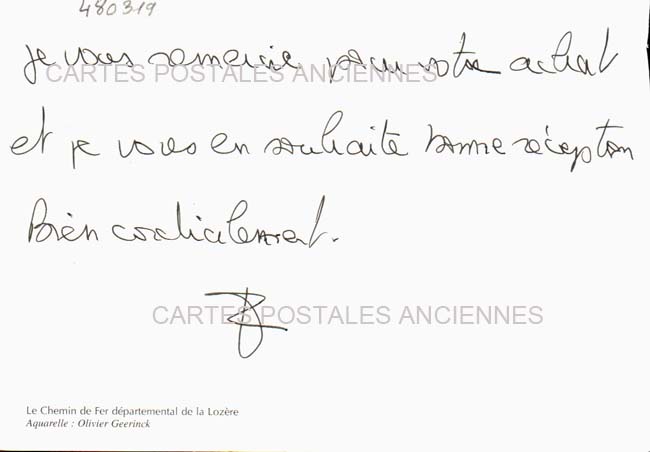 480319
je vous remercie pour votre achat
CARTES POSTALES ANCIENNES
et je vous en souhaite bonne réception
Bien cordialement.
CARTES POSTALES ANCIENNES
Le Chemin de Fer départemental de la Lozère
Aquarelle : Olivier Geerinck